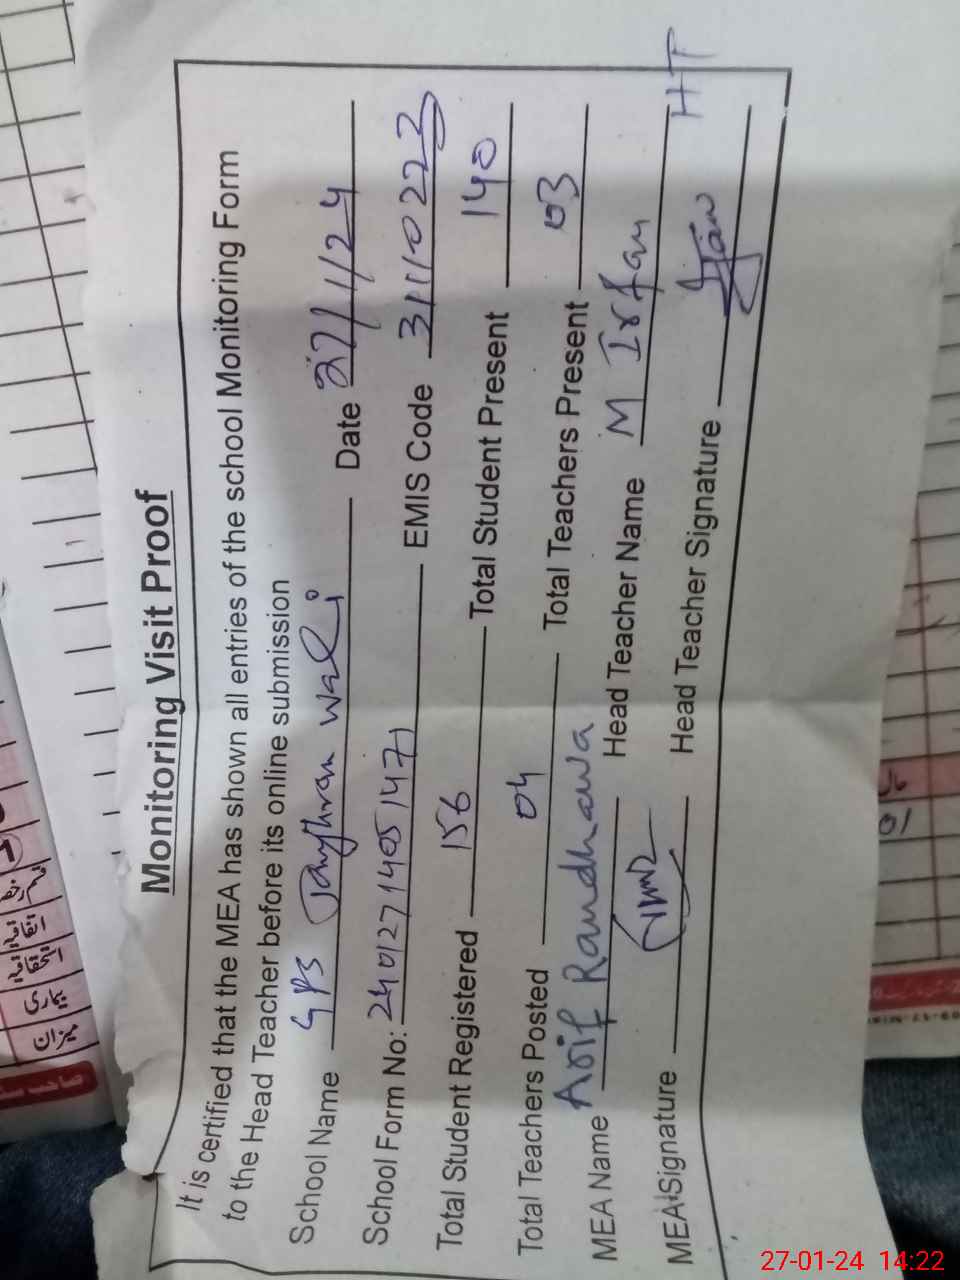 Monitoring Visit Proof
It is certified that the MEA has shown all entries of the school Monitoring Form
to the Head Teacher before its online submission
School Name GPS Wali Date 27/1/24
School Form No: 24012714051471 EMIS Code 31110223
Total Student Registered 156 Total Student Present 140
Total Teachers Posted 04 Total Teachers Present 03
MEA Name Arif Randhawa Head Teacher Name M Irfan
MEA Signature Head Teacher Signature
HT
میزان
بیماری
استحقاقیہ
اتفاقیہ
حال
01
27-01-24 14:22